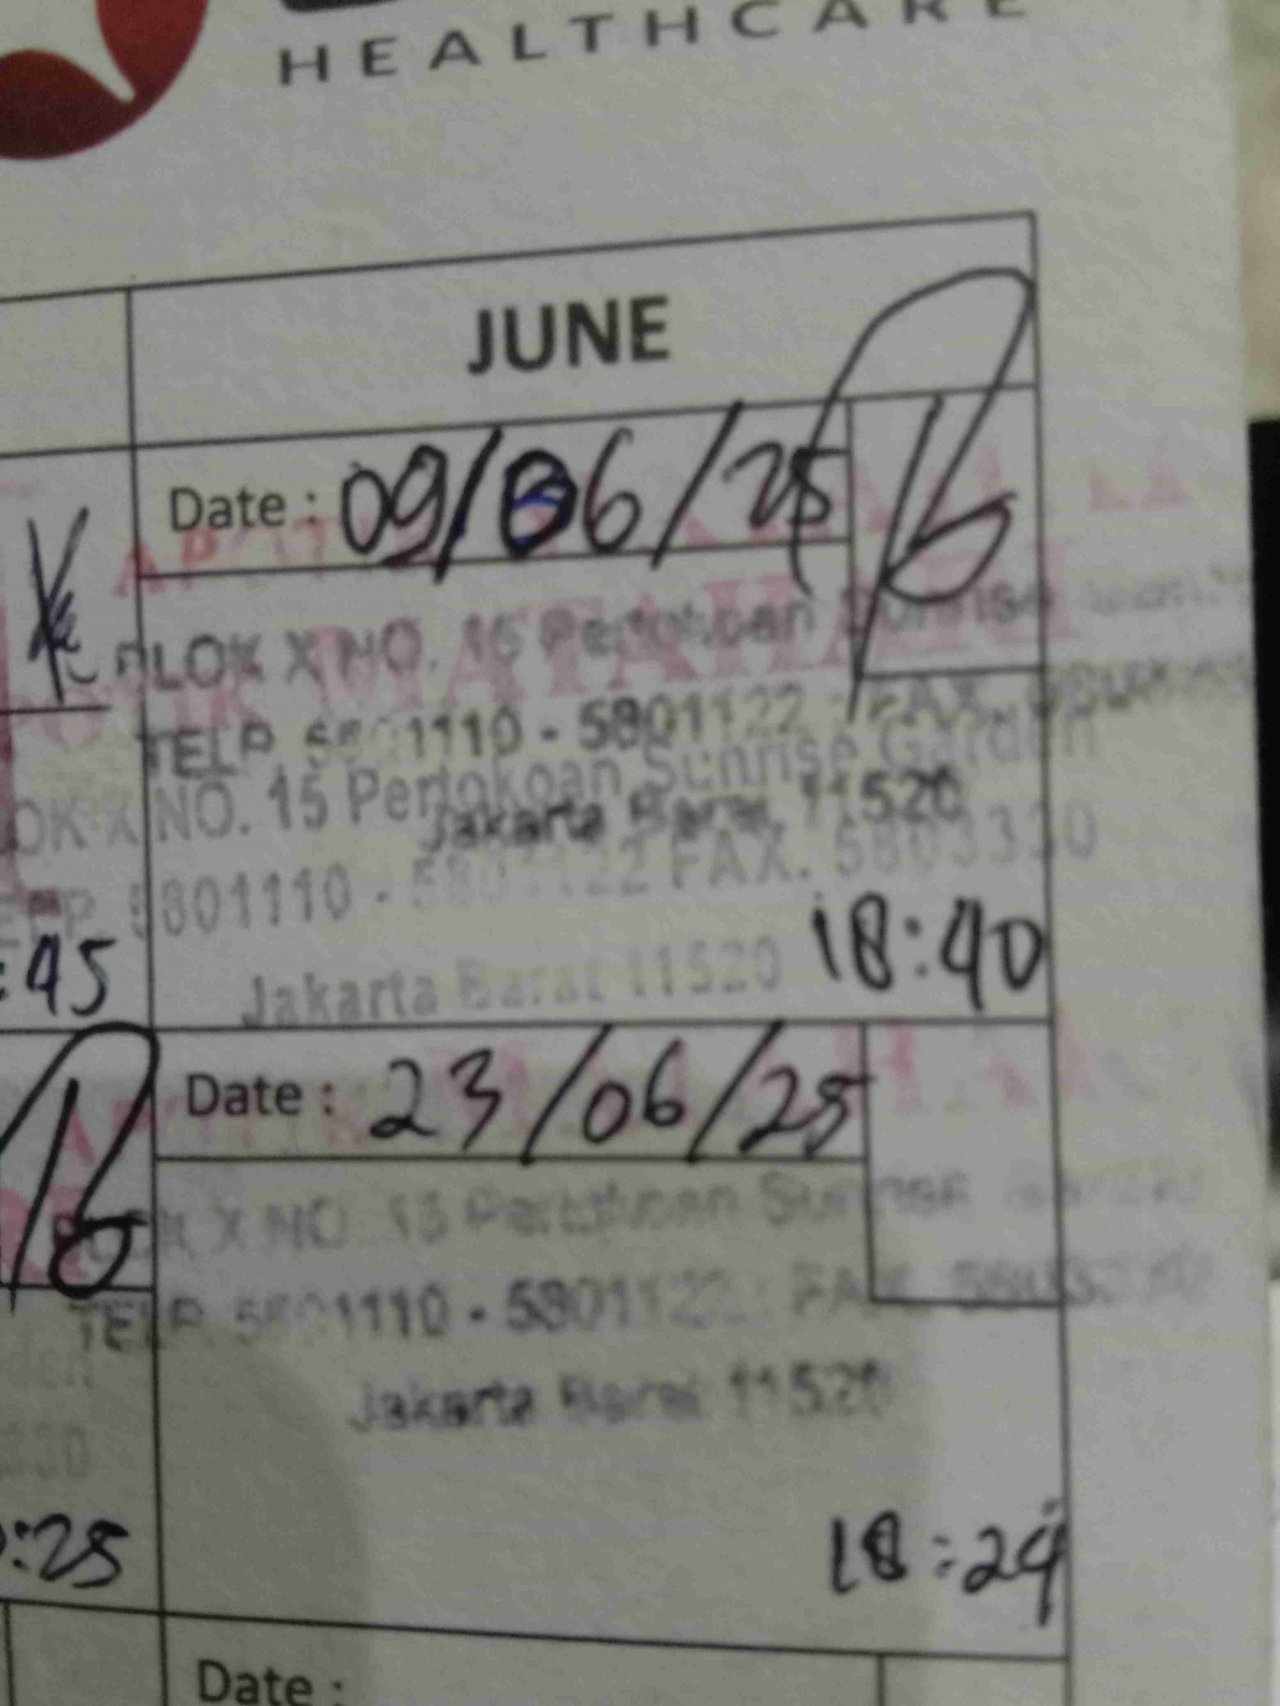 HEALTHCARE
JUNE
Date : 09/06/25
BLOK X NO. 15 Pertokoan Sunrise
TELP. 5801110 - 5801122 FAX.
OK X NO. 15 Pertokoan Sunrise Garden
Jakarta Barat 11520
5801110 - 5801122 FAX. 5803330
:45
18:40
Jakarta Barat 11520
Date : 23/06/25
X NO. 15 Pertokoan Sunrise
TELP. 5801110 - 5801122 FAX.
Jakarta Barat 11520
:25
18:24
Date :